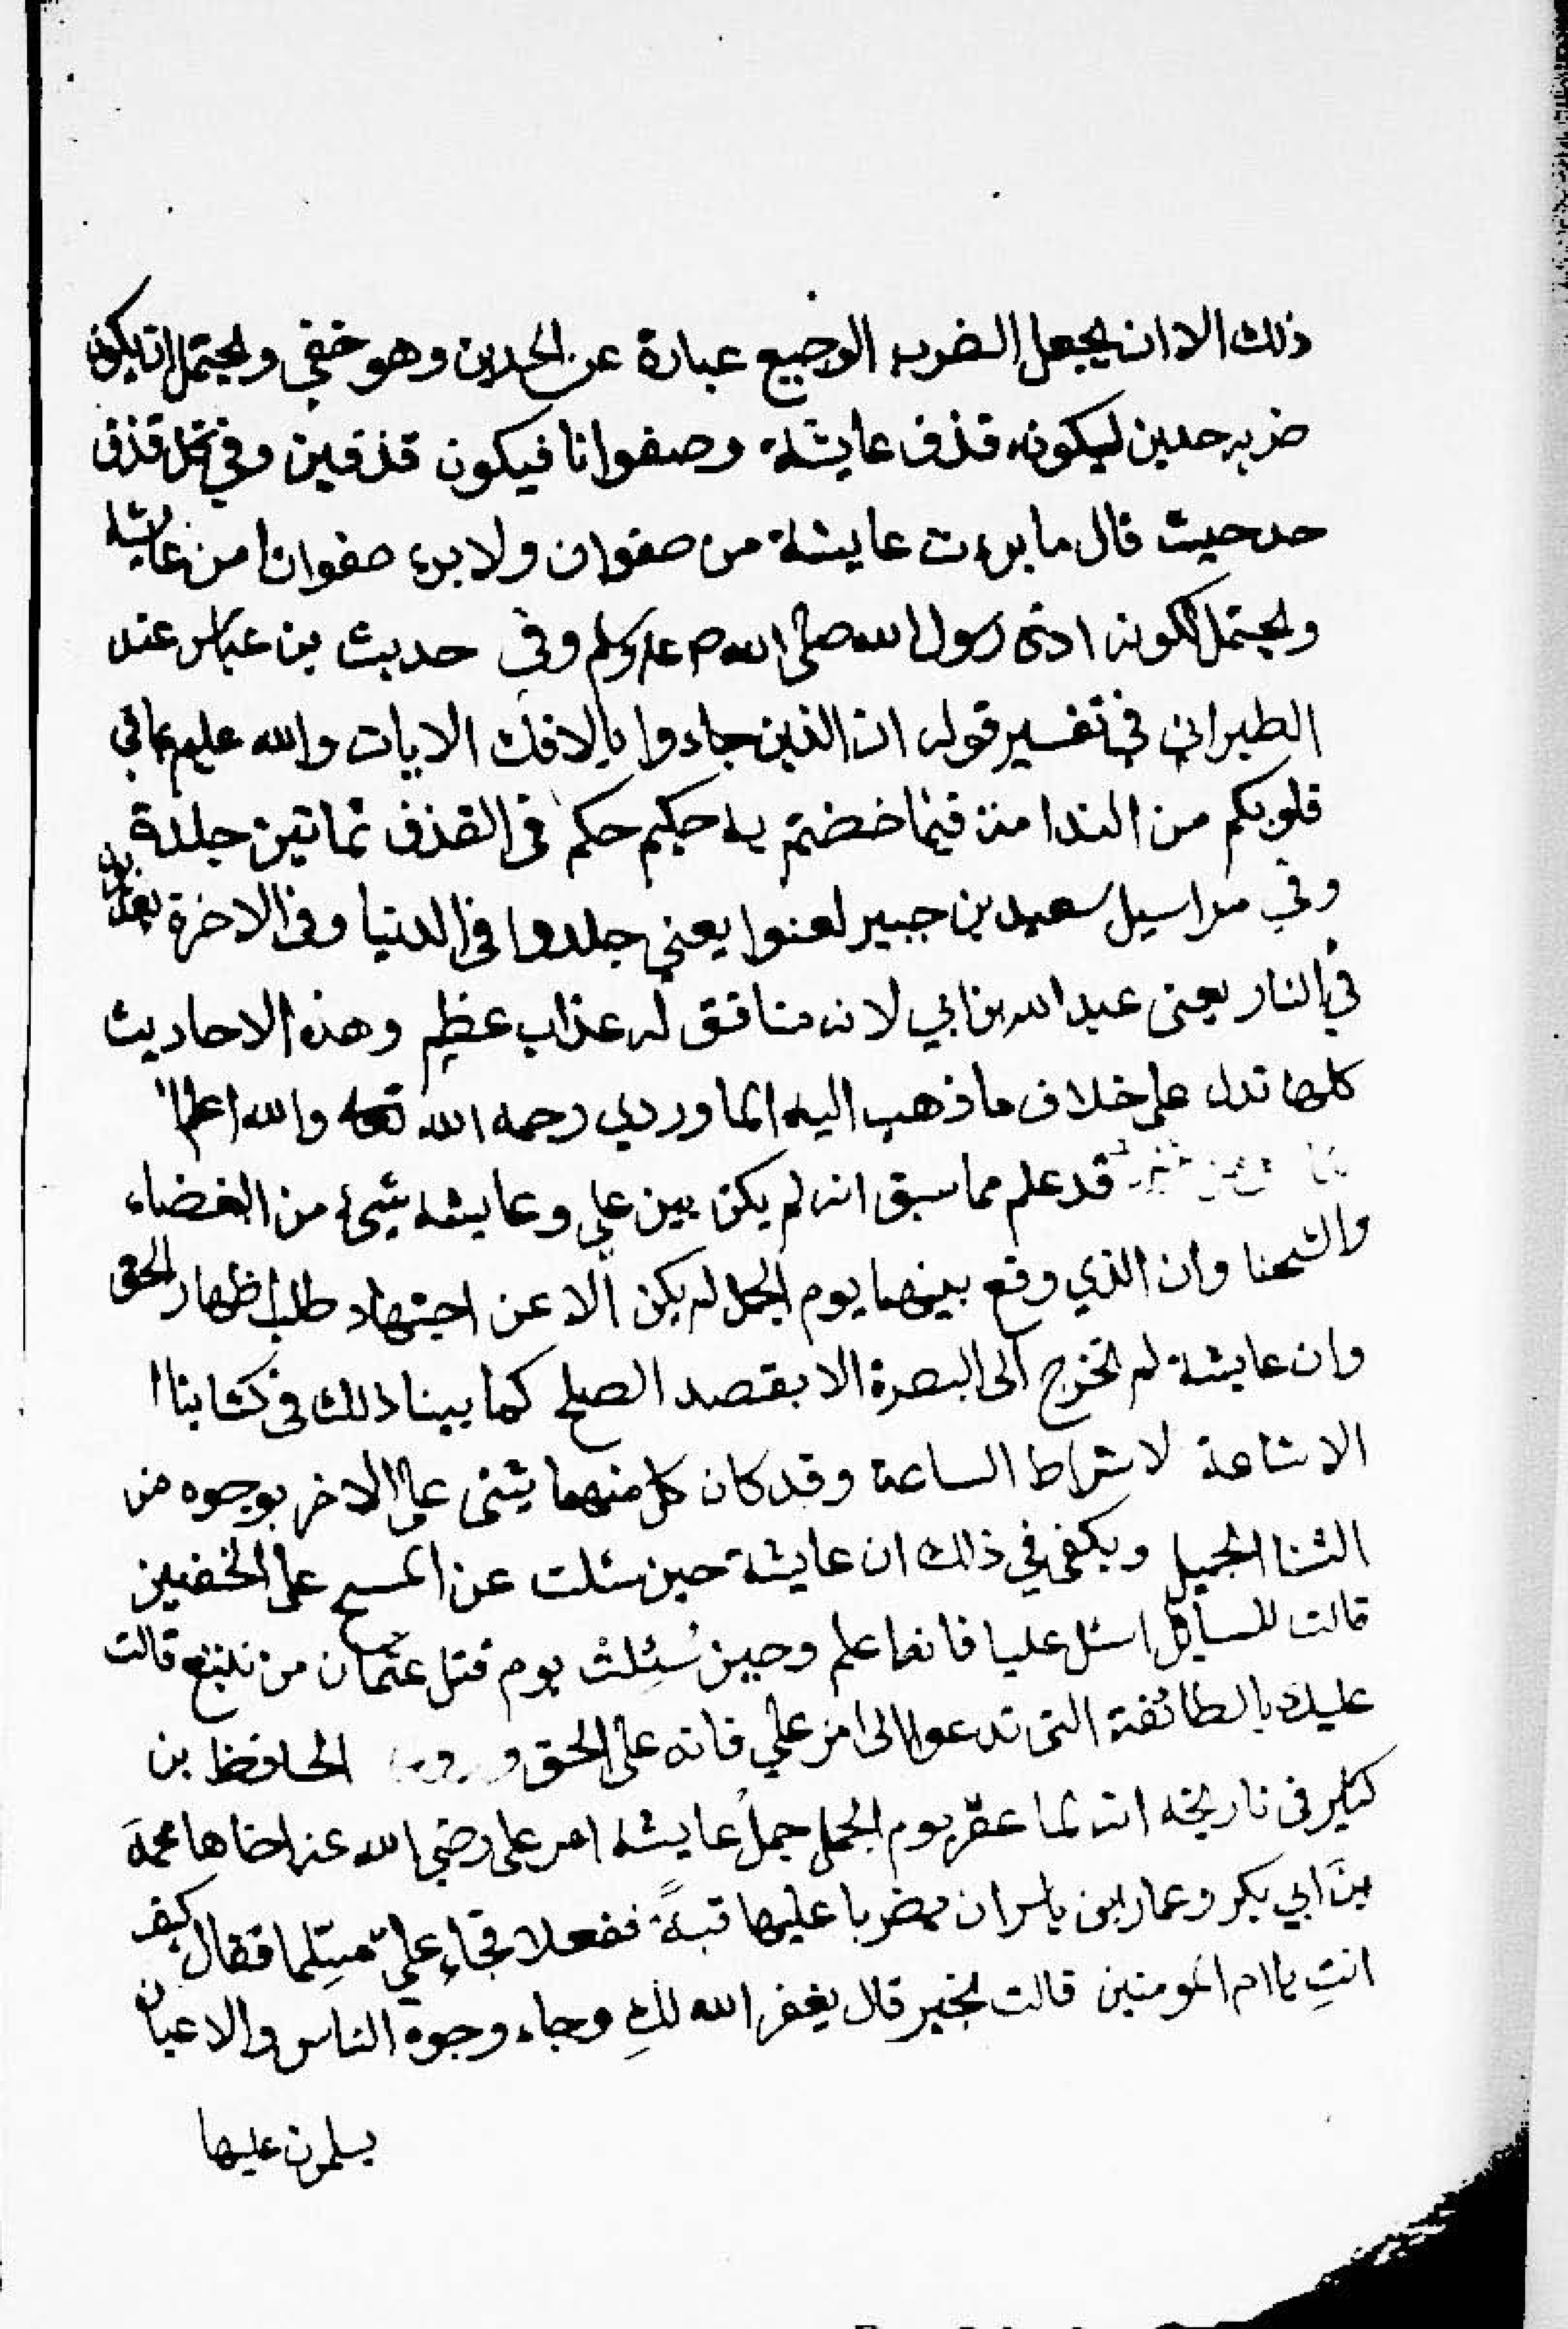 ذلك الا ان يجعل الضرب الوجيع عبارة عن الحدين وهو خفي ويحتمل ان يكون
ضربه حدين ليكونه قذف عايشة وصفوانا فيكون قذفين وفي كل قذف
حد حيث قال ما برءت عايشة من صفوان ولا برء صفوان من عايشة
ويحتمل لكونه اذى رسول الله صلى الله عليه وسلم وفي حديث بن عباس عند
الطبراني في تفسير قوله ان الذين جاءوا بالافك الايات والله عليم بما في
قلوبكم من الندامة فيما خضتم به حكيم حكم في القذف ثمانين جلدة
وفي مراسيل سعيد بن جبير لعنوا يعني جلدوا في الدنيا وفي الاخرة يعذبون
في النار يعنى عبد الله بن ابي لانه منافق له عذاب عظيم وهذه الاحاديث
كلها تدل على خلاف ما ذهب اليه الماوردي رحمه الله تعالى والله اعلم
قد علم مما سبق انه لم يكن بين علي وعايشه شيئ من البغضاء
والشحنا وان الذي وقع بينهما يوم الجمل لم يكن الا عن اجتهاد طلب اظهار الحق
وان عايشة لم تخرج الى البصرة الا بقصد الصلح كما بينا ذلك في كتابنا
الاشاعة لاشراط الساعة وقد كان كل منهما يثنى على الاخر بوجوه من
الثنا الجميل ويكفى في ذلك ان عايشة حين سئلت عن المسح على الخفين
قالت للسايل اسئل عليا فانه اعلم وحين سُئِلتْ يوم قتل عثمان من نتبع قالت
عليك بالطائفة التى تدعوا الى امر علي فانه على الحق الحافظ بن
كثير فى تاريخه انه لما عقر يوم الجمل جمل عايشه امر على رضي الله عنه اخاها محمد
بن ابي بكر وعمار ابن ياسر ان يضربا عليها قبةً ففعلا فجاء علي مسلما فقال كيف
انتِ يا ام المومنين قالت بخير قال يغفر الله لكِ وجاء وجوه الناس والاعيان
يسلمون عليها